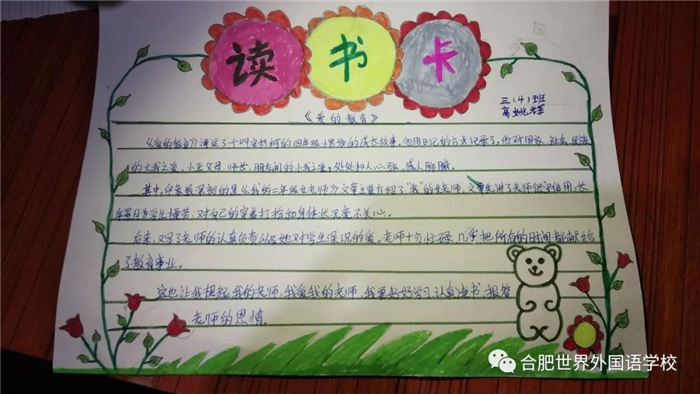 读书卡
三(4)班
高姚
《爱的教育》
《爱的教育》讲述了个叫安利柯的四年级小男孩的成长故事,他用自己的方式记录了,他对国家、社会、民族
的大我之爱,小至父母、师长、朋友间的小我之爱;处处扣人心弦、感人肺腑。
其中,印象最深刻的是《我的二年级女老师》文章主要介绍了"我"的女老师,文章先讲了老师但守信用,长
年累月为学生操劳,对自己的穿着打扮和身体状况漠不关心。
后来,又写了老师的认真负责以及她对学生深沉的爱。老师十分忙碌,几乎把所有的时间都献给
了教育事业。
这也让我想起我的老师,我爱我的老师,我要好好学习,认真读书,报答
老师的恩情。
合肥世界外国语学校